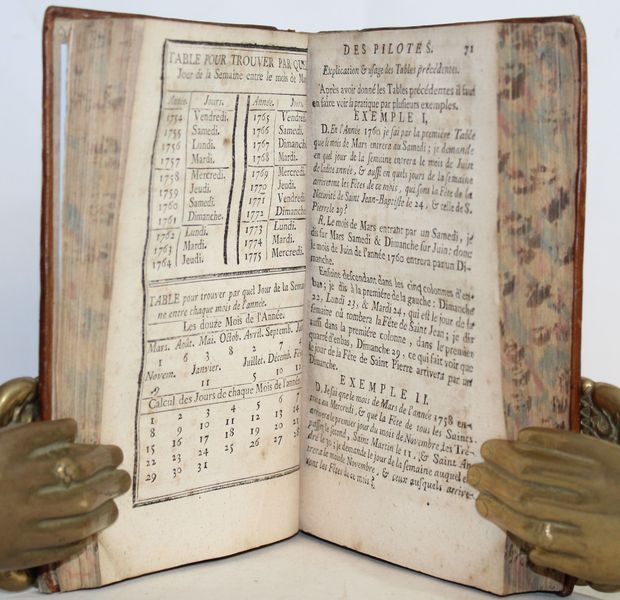 TABLE POUR TROUVER PAR QUEL
Jour de la Semaine entre le mois de Mar
Année. Jours. Année. Jours.
1754 Vendredi. 1765 Vendredi
1755 Samedi. 1766 Samedi.
1756 Lundi. 1767 Dimanche
1757 Mardi. 1768 Mardi.
1758 Mercredi. 1769 Mercredi.
1759 Jeudi. 1770 Jeudi.
1760 Samedi. 1771 Vendredi
1761 Dimanche. 1772 Dimanche
1762 Lundi. 1773 Lundi.
1763 Mardi. 1774 Mardi.
1764 Jeudi. 1775 Mercredi.
TABLE pour trouver par quel Jour de la Sema
ne entre chaque mois de l'année.
Les douze Mois de l'Année.
Mars. Août. Mai. Octob. Avril. Septemb. Jui
1 6 3 8 2 7
Novem. Janvier. Juillet. Décemb. Fév
9 11 5 10 12
Calcul des Jours de chaque Mois de l'année
1 2 3 4 5 6 7
8 9 10 11 12 13 14
15 16 17 18 19 20 21
22 23 24 25 26 27 28
29 30 31
DES PILOTES. 71
Explication & usage des Tables précédentes.
Après avoir donné les Tables précédentes il faut
en faire voir la pratique par plusieurs exemples.
EXEMPLE I,
D. En l'Année 1760 je sai par la première Table
que le mois de Mars entrera au Samedi; je demande
en quel jour de la semaine entrera le mois de Juin
de ladite année, & aussi en quels jours de la semaine
arriveront les Fêtes de ce mois, qui sont la Fête de la
Nativité de Saint Jean-Baptiste le 24, & celle de S.
Pierre le 29?
R. Le mois de Mars entrant par un Samedi, je
dis sur Mars Samedi & Dimanche sur Juin: donc
le mois de Juin de l'année 1760 entrera par un Di-
manche.
Ensuite descendant dans les cinq colonnes d'en
bas; je dis à la première de la gauche: Dimanche
22, Lundi 23, & Mardi 24, qui est le jour de la
semaine où tombera la Fête de Saint Jean; je dis
aussi dans la première colonne, dans le premier
quarré d'enbas, Dimanche 29, ce qui fait voir que
le jour de la Fête de Saint Pierre arrivera par un
Dimanche.
EXEMPLE II.
D. Je sai que le mois de Mars de l'année 1758 en-
trera au Mercredi, & que la Fête de tous les Saints
arrivera le premier jour du mois de Novembre, les Tré-
passés le second, Saint Martin le 11, & Saint An-
dré le 30; je demande le jour de la semaine auquel en-
trera le mois de Novembre, & ceux ausquels arrive-
ront les Fêtes de ce mois?